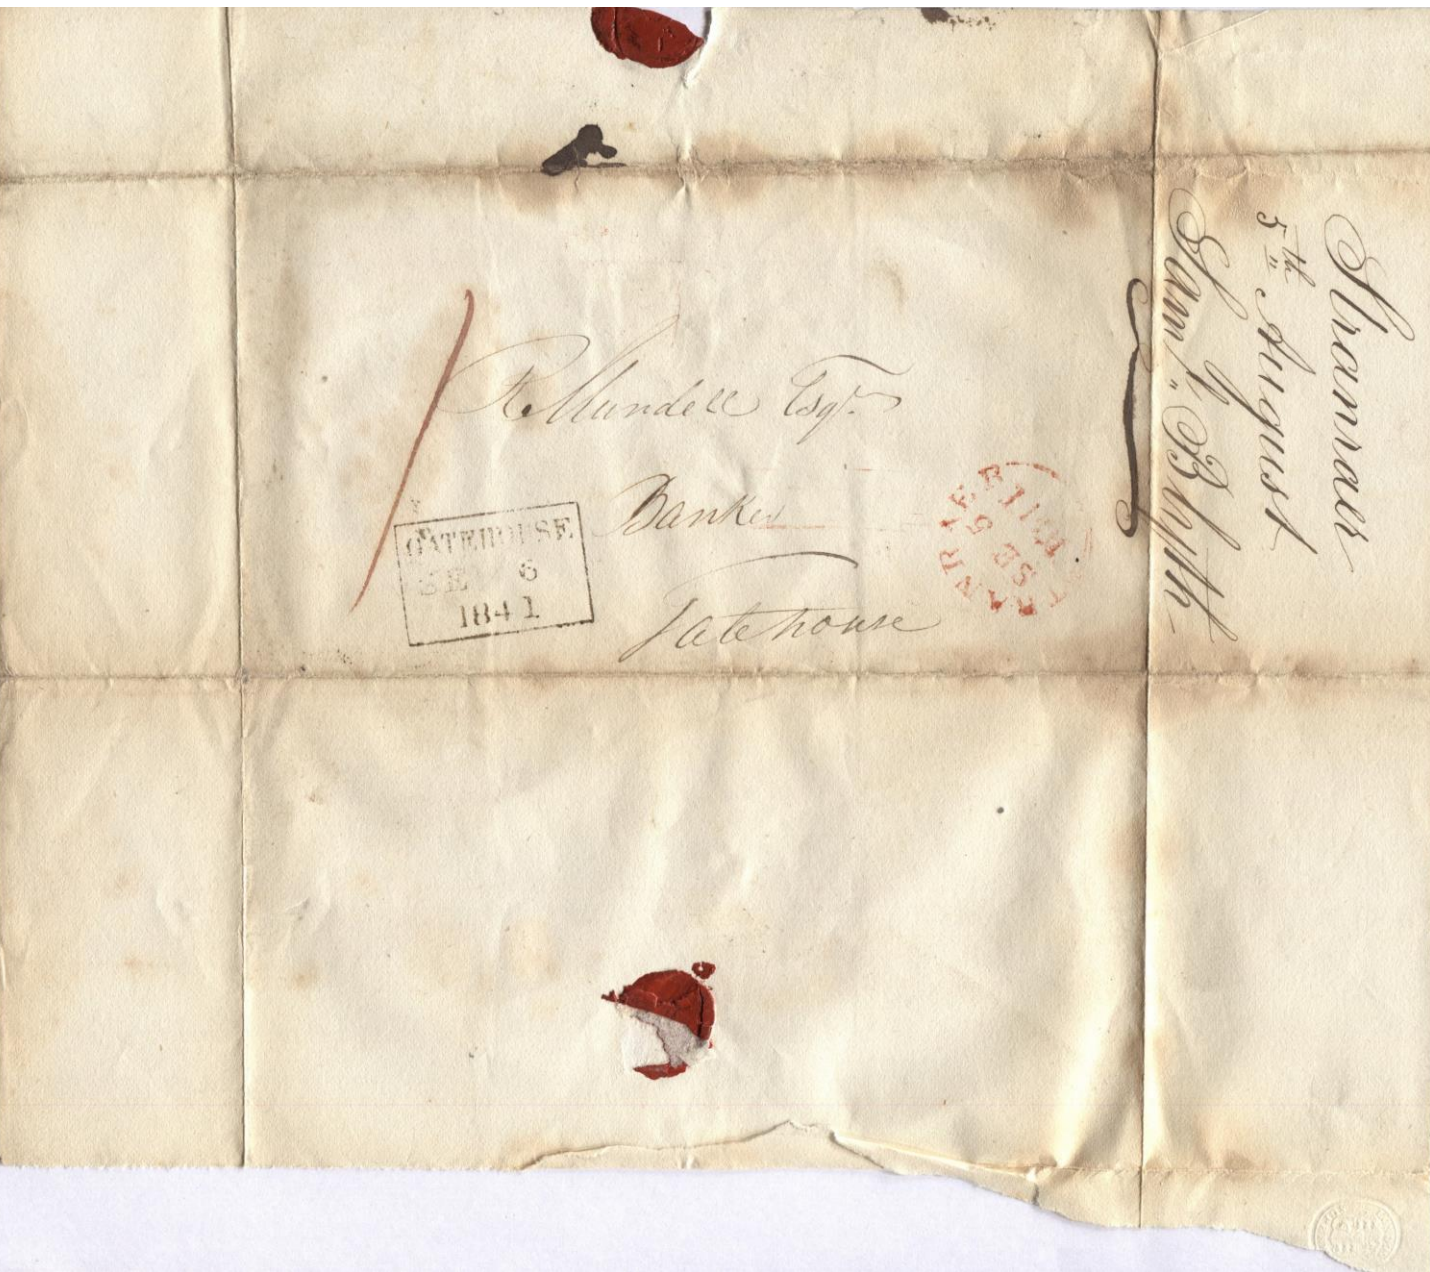 R. Mundell Esqr.
Banker
Gatehouse
GATEHOUSE
SE 6
1841
STRANRAER
SE 5
Stranraer
5th August
Saml. Blyth